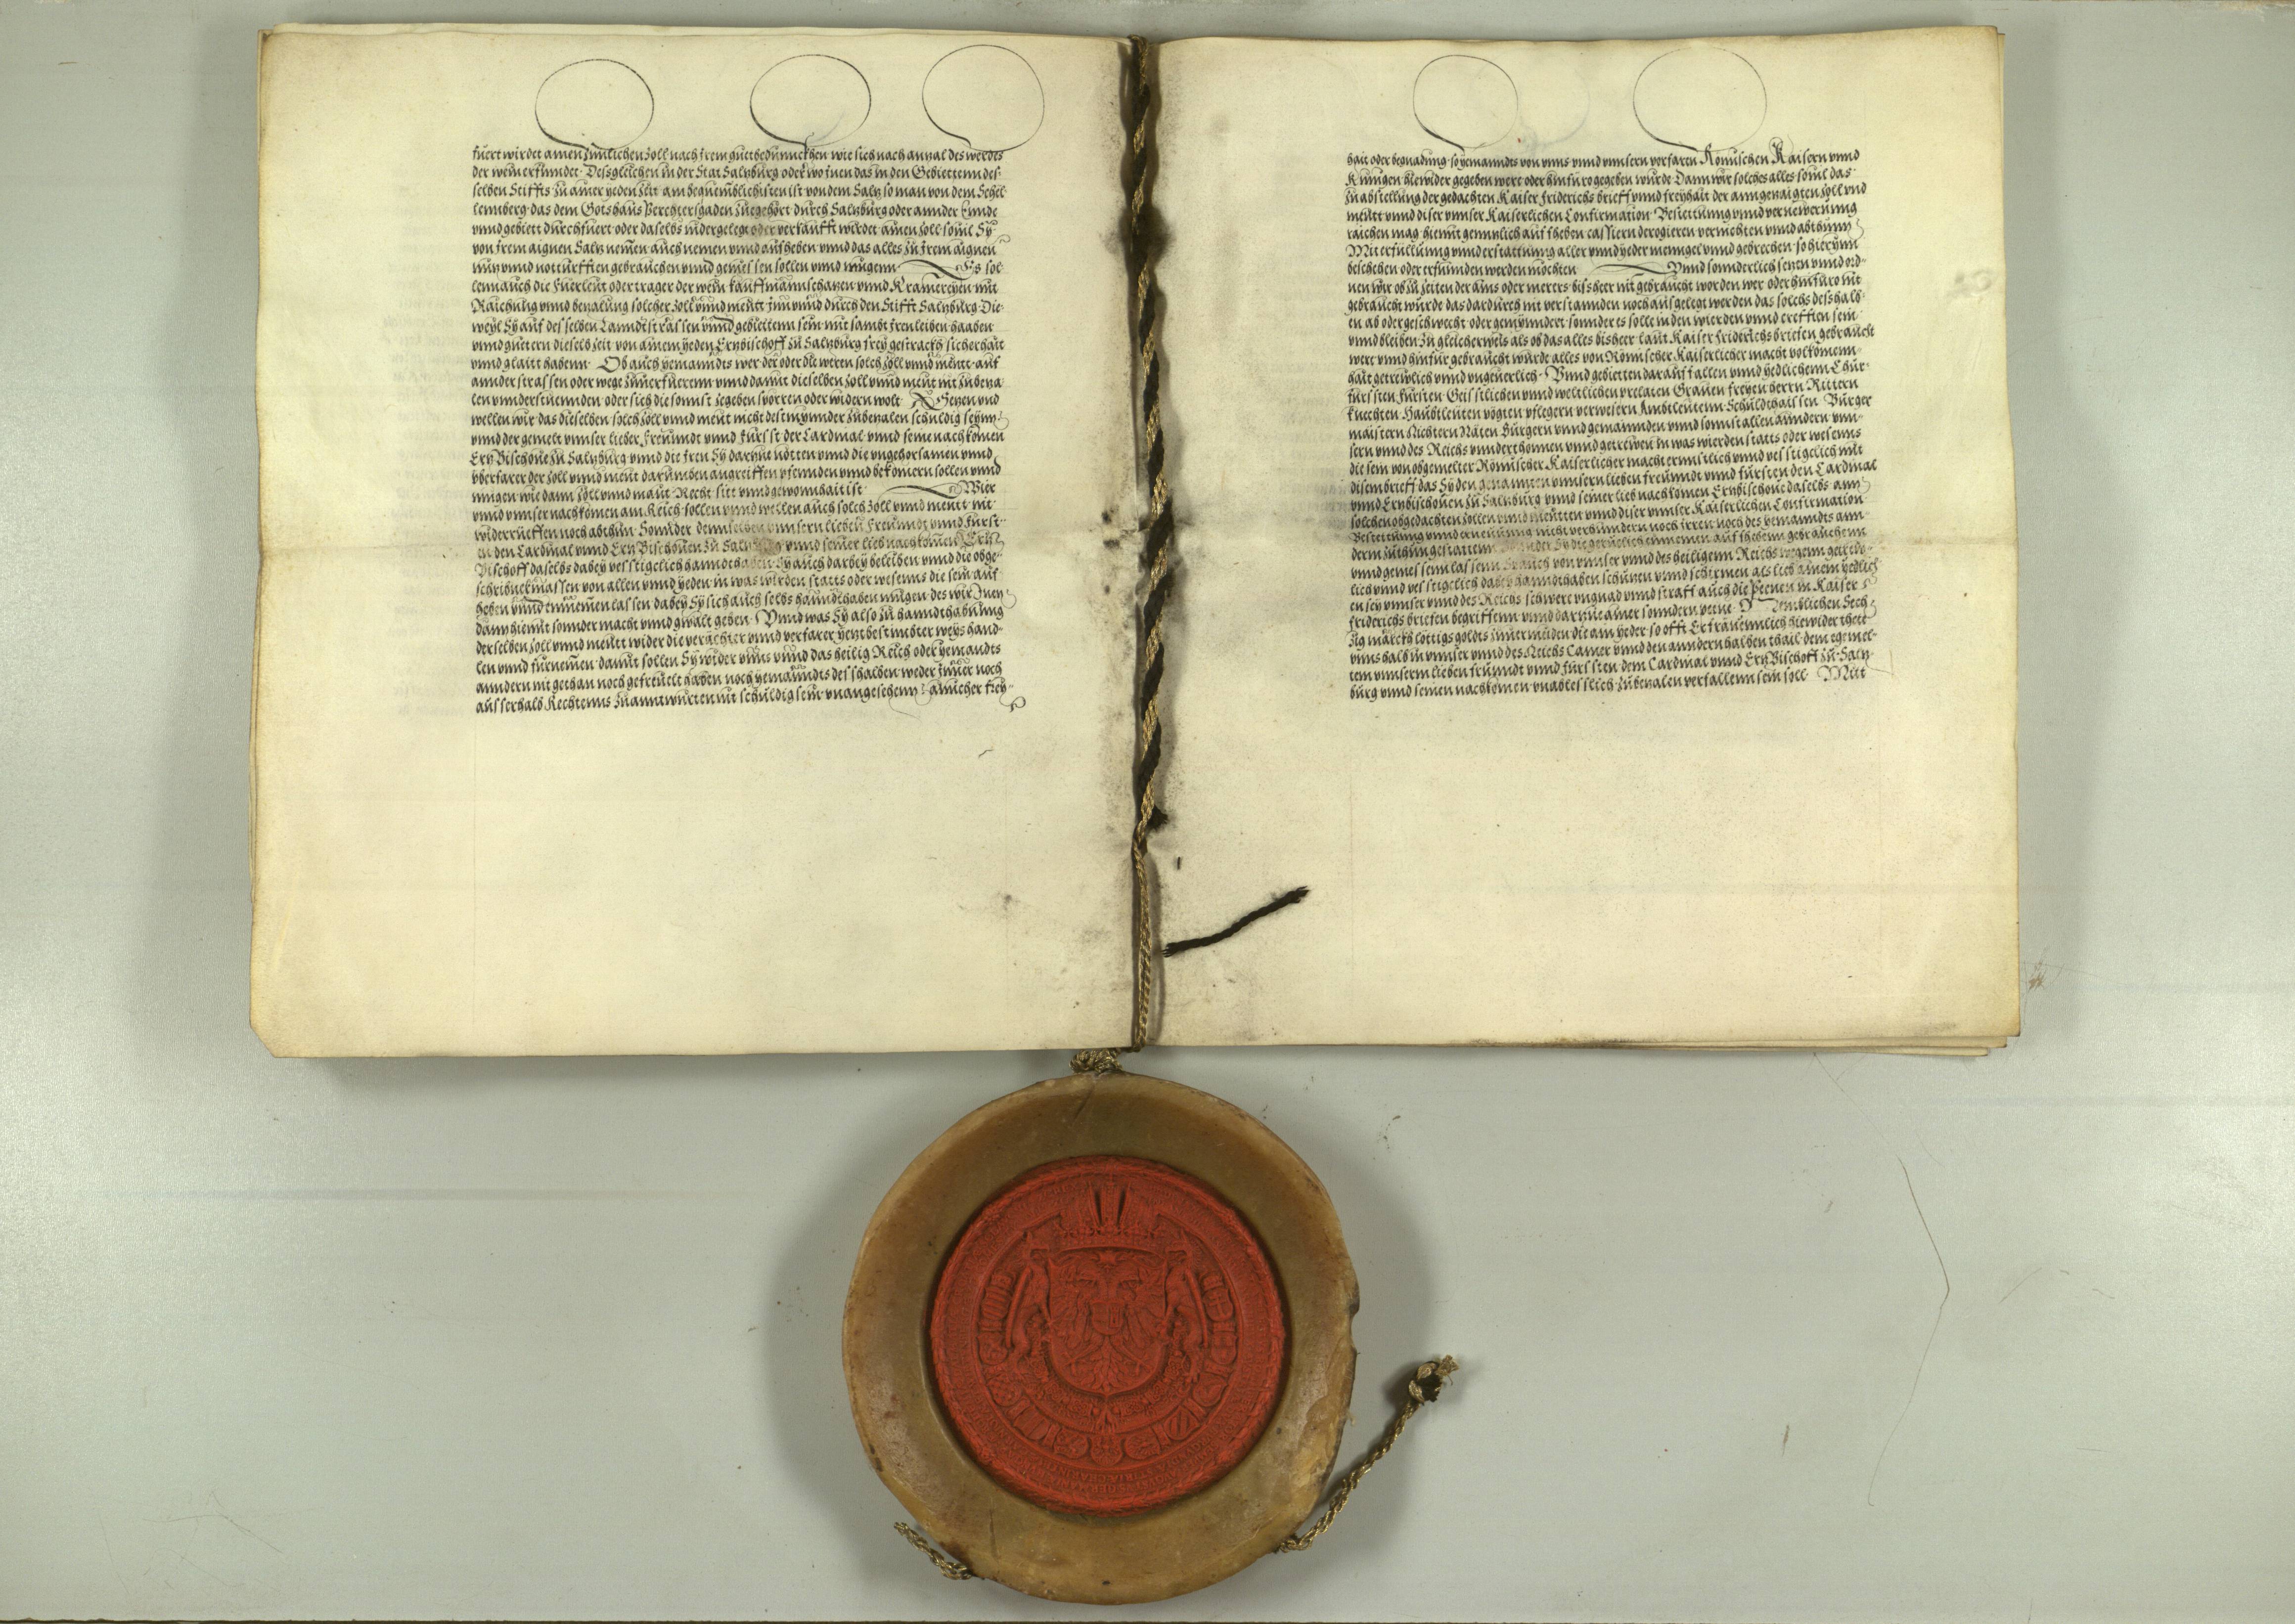 fuert wirdet ainen zimlichen zoll nach jrem guetbedunnckhen wie sich nach anzal des werdes
der wein erfindet. Dessgleichen in der Stat Saltzburg oder wo jnen das in den Gebiettenn des
selben Stiffts zu ainer yeden Zeit am bequemblichisten ist von dem Saltz so man von dem Schel
lennberg das dem Gotshaus Berchtersgaden zuegehört durch Saltzburg oder annder Ennde
vnnd gebiett durchfuert oder daselbs nidergelegt oder verkaufft wirdet ainen zoll souil Sy
von jrem aignen Saltz nemen auch nemen vnnd aufheben vnnd das alles zu jrem aignen
nutz vnnd notturfften gebrauchen vnnd geniessen sollen vnnd mügenn Es sol
lenn auch die Fuerleut oder trager der wein kauffmannschatzen vnnd Kramereyen mit
Raichung vnnd bezalung solcher Zoll vnnd meutt jnn vnnd durch den Stifft Saltzburg Die
weyl Sy auf desselben Lanndtstrassen vnnd gebiettenn sein mit sambt jren leiben haaben
vnnd guettern dieselb zeit von ainem yeden Ertzbischoff zu Saltzburg frey gestrackh sicherhait
vnnd glaitt habenn. Ob auch yemanndts wer der oder die weren solch zoll vnnd meutt auf
annder strassen oder wege zuuerfuerenn vnnd damit dieselben zoll vnnd meut nit zubeza
len vnnderstuennden oder sich die sonnst zegeben sporren oder widern wolt Setzen vnd
wellen wir das dieselben solch zoll vnnd meut nicht destmynnder zubezalen schuldig seynn
vnnd der gemelt vnnser lieber Freundt vnnd Fürsst der Cardinal vnnd seine nachkomen
Ertz Bischoue zu Saltzburg vnnd die jren Sy dartzue nötten vnnd die vngehorsamen vnnd
vberfarer der zoll vnnd meut darumben angreiffen pfennden vnnd bekomern sollen vnnd
mügen wie dann zöll vnnd maut Recht sitt vnnd gewonnhait ist Wier
vnnd vnnser nachkomen am Reich sollen vnnd wellen auch solch zoll vnnd meutt nit
widerrueffen noch abthun. Sonnder demselben vnnserm lieben Freundt vnnd Fürst
en den Cardinal vnnd Ertz Bischouen zu Saltzburg vnnd seiner lieb nachkomen Ertz
Bischoff daselbs dabey vesstigelich hanndthaben Sy auch darbey beleiben vnnd die obge
schribnermassen von allen vnnd yeden in was wirden statts oder wesenns die sein auf
heben vnnd einnemen lassen dabey Sy sich auch selbs hanndthaben mügen des wir Jnen
dann hiemit sonder macht vnnd gwalt geben. Vnnd was Sy also zu hanndthabung
derselben zoll vnnd meutt wider die verachter vnnd verfarer yetzbestimbter weys hand
len vnnd furnemen damit sollen Sy wider vnns vnnd das heilig Reich oder yemandts
anndern nit gethan noch gefreuelt haben noch yemanndts desshalben weder jnner noch
ausserhalb Rechtenns zuanntwurten nit schuldig sein vnangesehenn ainicher frey
hait oder begnadung so yemanndts von vnns vnnd vnnsern vorfaren Römischen Kaisern vnnd
Kunigen hiewider gegeben were oder hinfuro gegeben wurde Dann wir solches alles souil das
zu abstellung der gedachten Kaiser Friderichs brieff vnnd freyhait der anngezaigten zoll vnd
meutt vnnd diser vnnser Kaiserlichen Confirmation Bestettung vnnd vernewerung
raichen mag hiemit genntzlich aufheben cassiern derogieren vernichten vnnd abthunn
Mit erfüllung vnnd erstattung aller vnnd yeder menngel vnnd gebrechen so hierynn
beschehen oder erfunden werden möchten Vnnd sonnderlich setzen vnnd ord
nen wir ob zu zeiten der ains oder merers bissheer nit gebraucht worden wer oder hinfuro nit
gebraucht wurde das dardurch nit verstannden noch ausgelegt werden das solchs desshalb
en ab oder geschwecht oder gemynndert sonnder es solle in den wierden vnnd crefften sein
vnnd bleiben zu gleicherweis als ob das alles bisheer laut Kaiser Friderichs briefen gebraucht
wert vnnd hinfür gebraucht wurde alles von Römischer Kaiserlicher macht volkomenn
hait getrewlich vnnd vngeuerlich. Vnnd gebietten darauf allen vnnd yedlichenn Chur
fürssten Fürsten Geisstlichen vnnd weltlichen prelaten Grauen Freyen herrn Rittern
knechten Haubtleuten vögten pflegern verwesern Ambtleutenn Schuldthaissen Burger
maistern Richtern Räten Burgern vnnd gemainnden vnnd sonnst allen anndern vnn
sern vnnd des Reichs vnnderthonen vnnd getrewen in was wierden statts oder wesenns
die sein von obgemelter Römischer Kaiserlicher macht ernnstlich vnnd vesstigelich mit
disem brieff das Sy den genannten vnnsern lieben freundt vnnd Fürsten den Cardinal
vnnd Ertzbischouen zu Saltzburg vnnd seiner lieb nachkomen Ertzbischoue daselbs ann
solchen obgedachten zollen vnnd meutten vnnd diser vnnser Kaiserlichen Confirmation
Bestettung vnnd ernewung nicht verhindern noch jrren noch des yemanndts ann
dern zuthun gestattenn Sonnder Sy die geruelich einnemen aufhebenn gebrauchenn
vnnd geniessenn lassenn Sy auch von vnnser vnnd des heiligenn Reichs wegenn getrew
lich vnnd vesstigelich dabey hanndthaben schutzen vnnd schirmen als lieb ainem yedlich
en sey vnnser vnnd des Reichs schwere vngnad vnnd straff auch die Peenen in Kaiser
Friderichs briefen begriffenn vnnd dartzue ainer sonndern peene Nemblichen Sech
tzig marckh löttigs goldts zuuermeiden die ain yeder so offt Er frauennlich hiewider thett
vnns halb in vnnser vnnd des Reichs Camer vnnd den anndern halben thail dem egemel
tem vnnserm lieben freundt vnnd fürssten dem Cardinal vnnd Ertz Bischoff zu Saltz
burg vnnd seinen nachkomen vnablesslich zubezalen verfallenn sein soll. Mitt